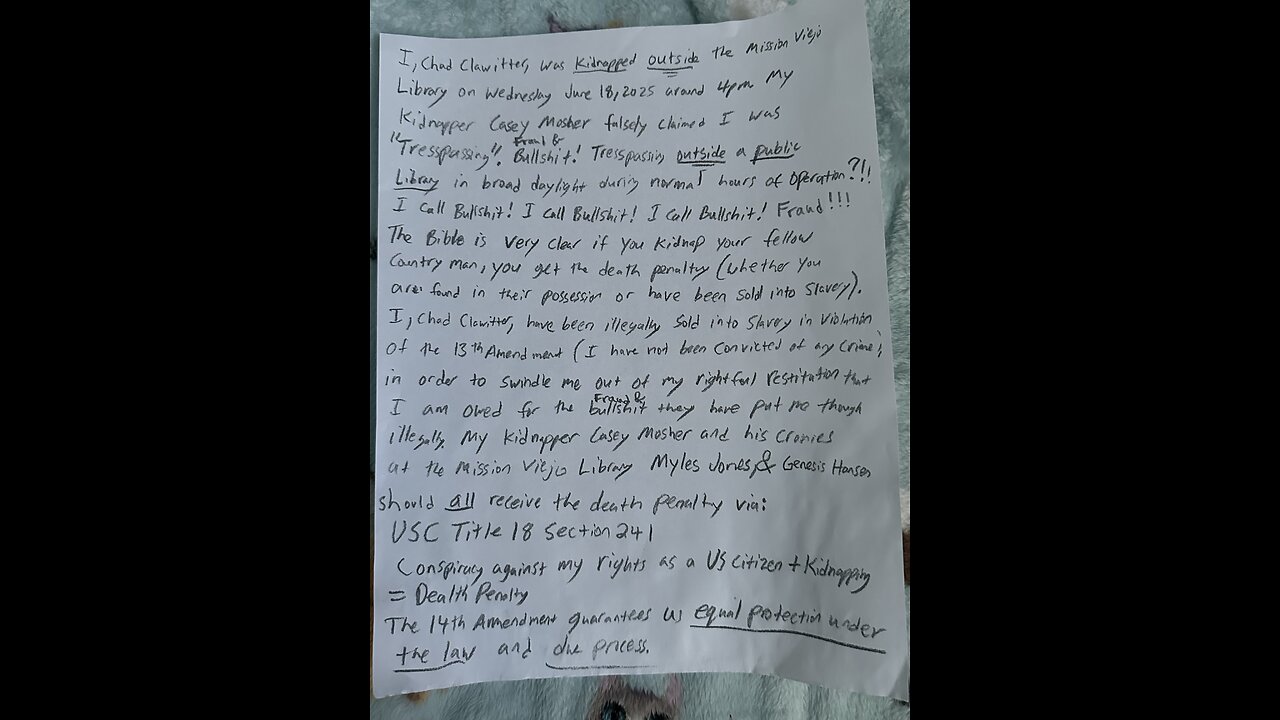 I, Chad Clawitter, was Kidnapped outside the Mission Viejo
Library on Wednesday June 18, 2025 around 4pm. My
Kidnapper Casey Mosher falsely claimed I was
"Tresspassing". Fraud & Bullshit! Tresspassing outside a public
Library in broad daylight during normal hours of operation?!!
I call Bullshit! I call Bullshit! I call Bullshit! Fraud!!!
The Bible is very clear if you kidnap your fellow
Country man, you get the death penalty (whether you
are found in their possession or have been sold into Slavery).
I, Chad Clawitter, have been illegally sold into Slavery in violation
of the 13th Amendment (I have not been convicted of any crime),
in order to swindle me out of my rightful restitution that
I am owed for the Fraud & bullshit they have put me though
illegally. My kidnapper Casey Mosher and his cronies
at the Mission Viejo Library Myles Jones, & Genesis Hansen
should all receive the death penalty via:
USC Title 18 Section 241
Conspiracy against my rights as a US citizen + Kidnapping
= Dealth Penalty
The 14th Amendment guarantees us equal protection under
the law and due process.